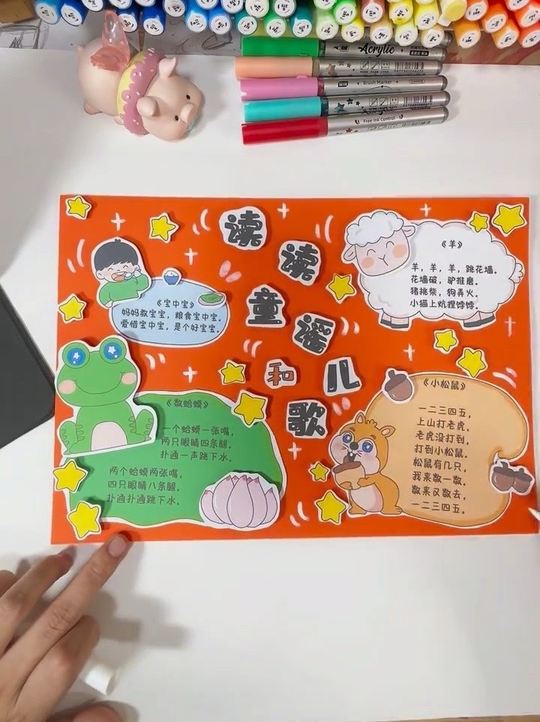 Acrylic
Brush Marker
Free Ink Control
读读
童谣
和儿
歌
《宝中宝》
妈妈教宝宝，粮食宝中宝。
爱惜宝中宝，是个好宝宝。
《羊》
羊，羊，羊，跳花墙。
花墙破，驴推磨。
猪挑柴，狗弄火。
小猫上炕捏饽饽。
《数蛤蟆》
一个蛤蟆一张嘴，
两只眼睛四条腿，
扑通一声跳下水。
两个蛤蟆两张嘴，
四只眼睛八条腿，
扑通扑通跳下水。
《小松鼠》
一二三四五，
上山打老虎，
老虎没打到，
打到小松鼠。
松鼠有几只，
我来数一数，
数来又数去，
一二三四五。